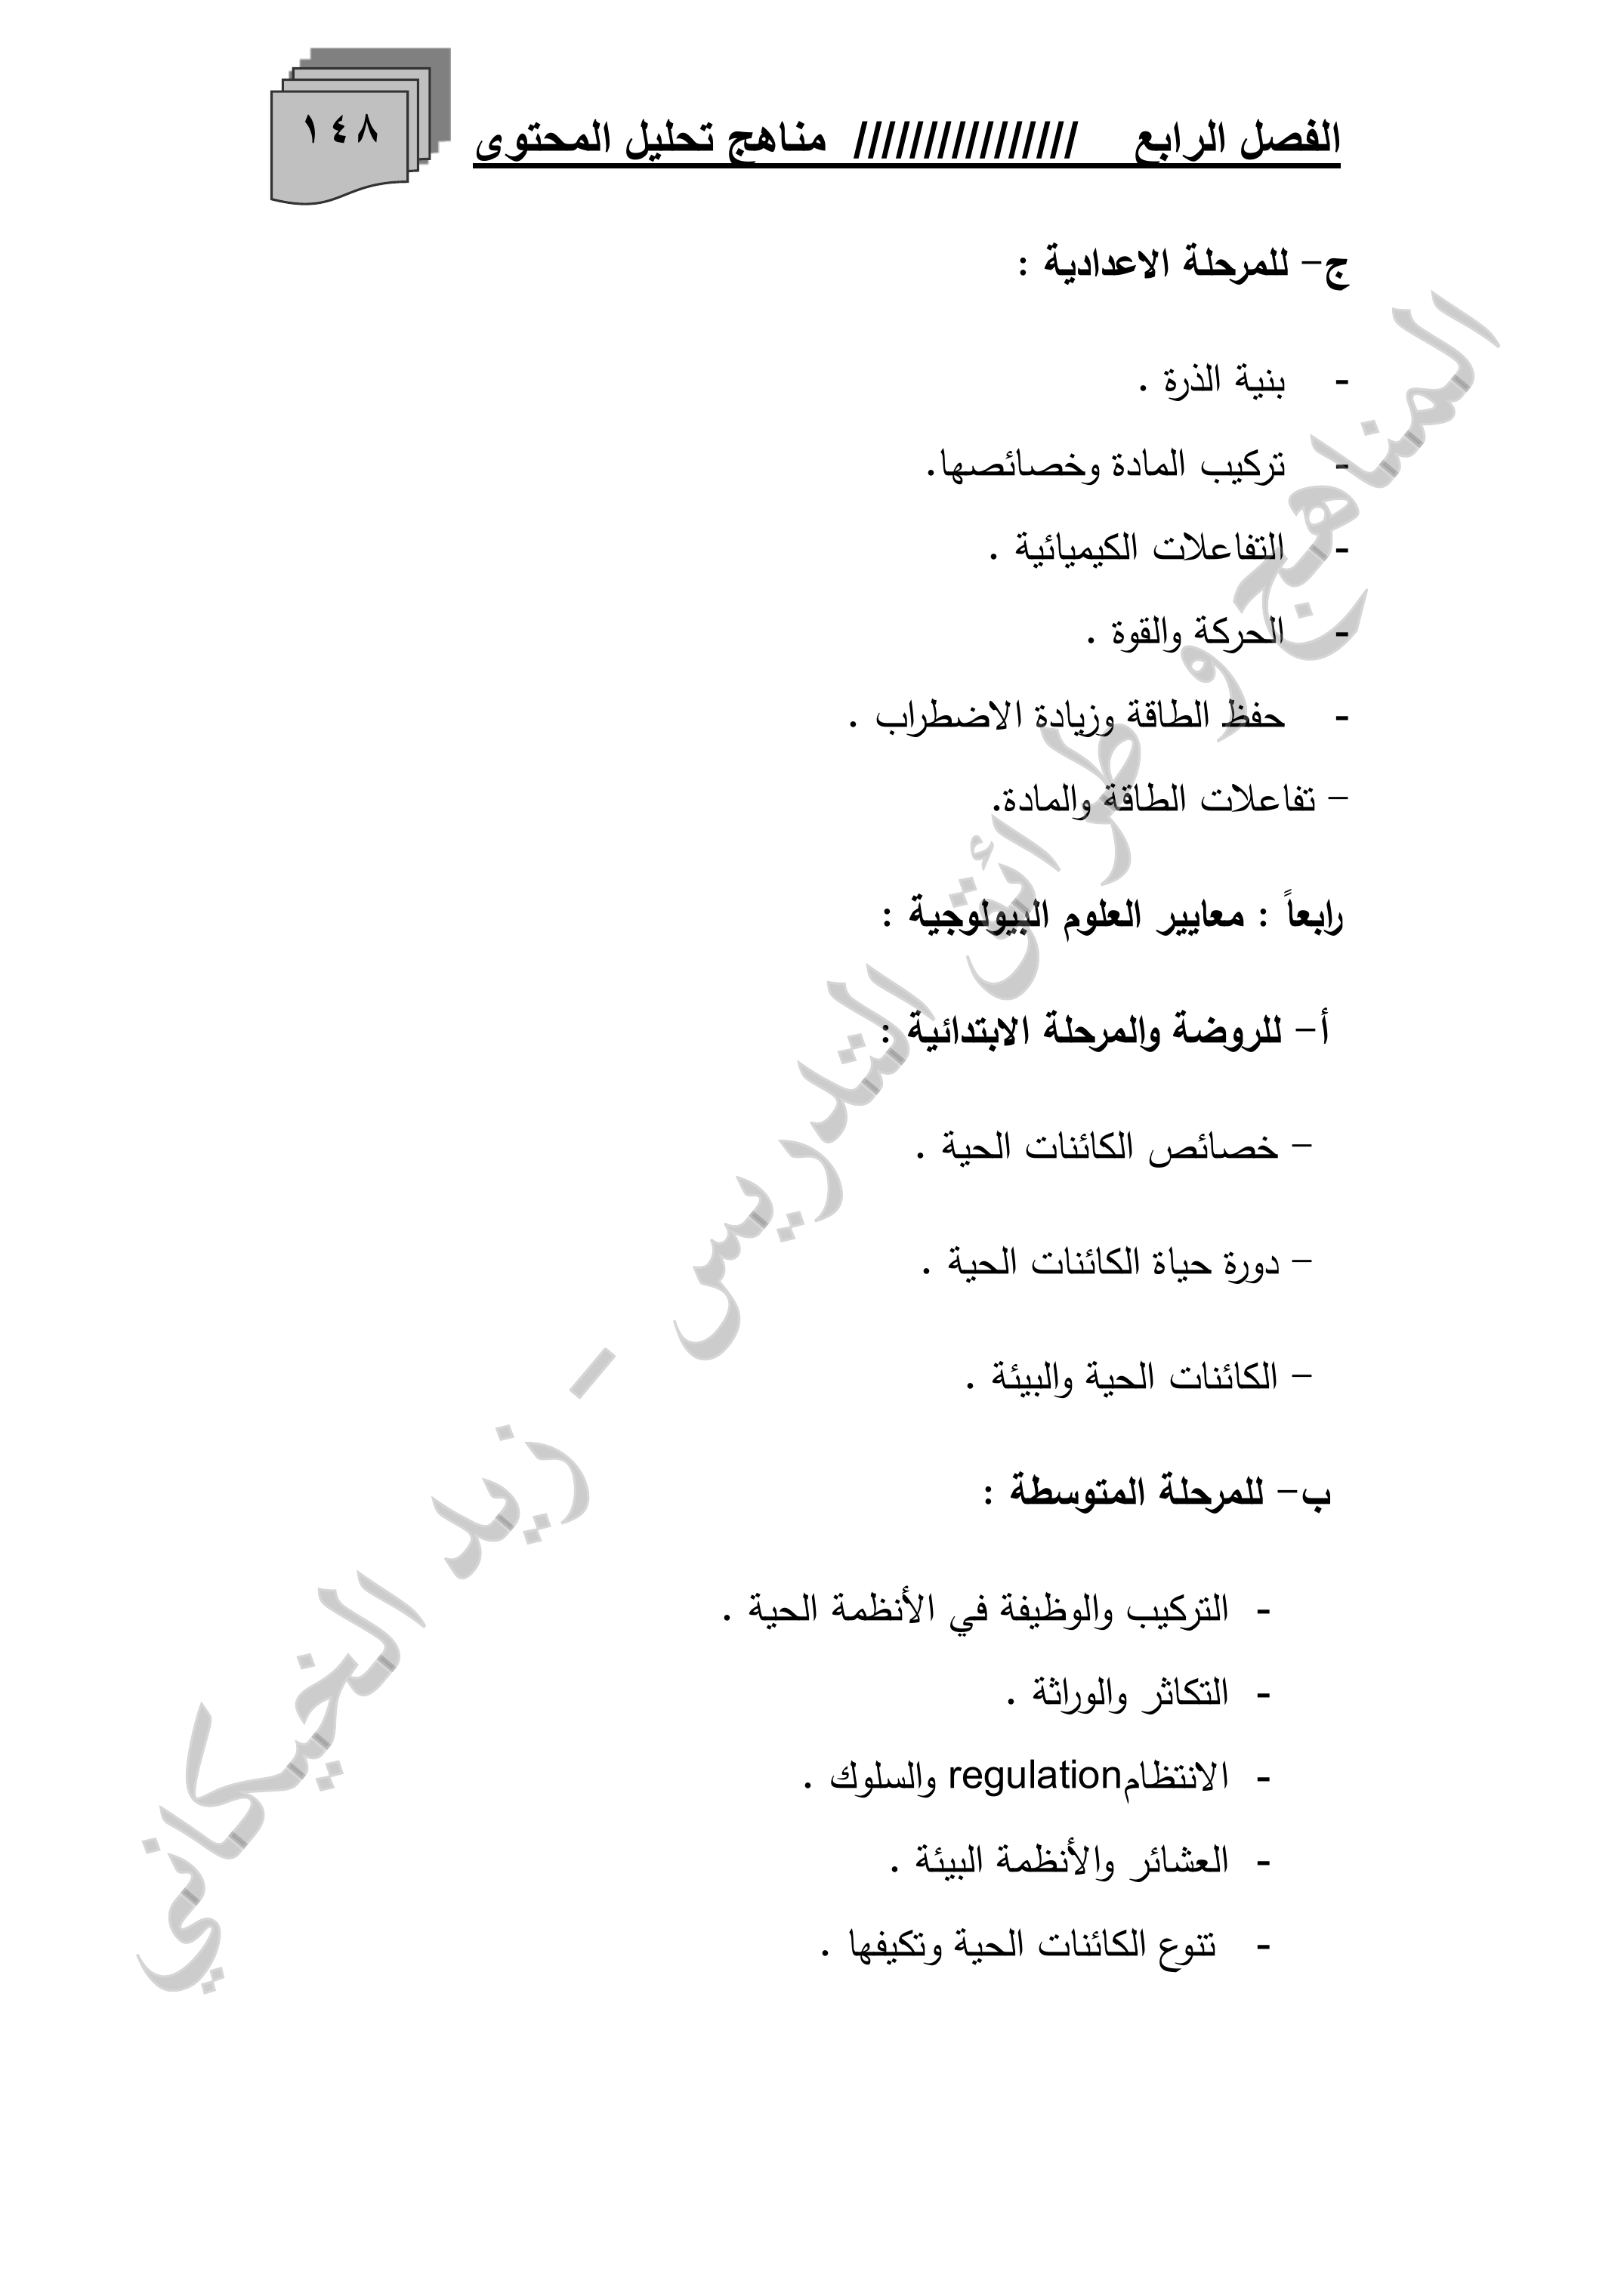 الفصل الرابع //////////////// مناهج تحليل المحتوى
١٤٨
ج- للمرحلة الاعدادية :
- بنية الذرة .
- تركيب المادة وخصائصها.
- التفاعلات الكيميائية .
- الحركة والقوة .
- حفظ الطاقة وزيادة الاضطراب .
- تفاعلات الطاقة والمادة.
رابعاً : معايير العلوم البيولوجية :
أ- للروضة والمرحلة الابتدائية :
- خصائص الكائنات الحية .
- دورة حياة الكائنات الحية .
- الكائنات الحية والبيئة .
ب- للمرحلة المتوسطة :
- التركيب والوظيفة في الأنظمة الحية .
- التكاثر والوراثة .
- الانتظامregulation والسلوك .
- العشائر والأنظمة البيئة .
- تنوع الكائنات الحية وتكيفها .
المناهج و طرائق التدريس - زيد الخيكاني